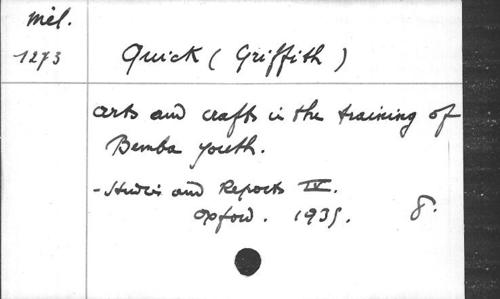 Mél.
1273
Quick (Griffith)
arts and crafts in the training of
Bemba youth.
- Studies and Reports IV.
Oxford. 1935. 8.